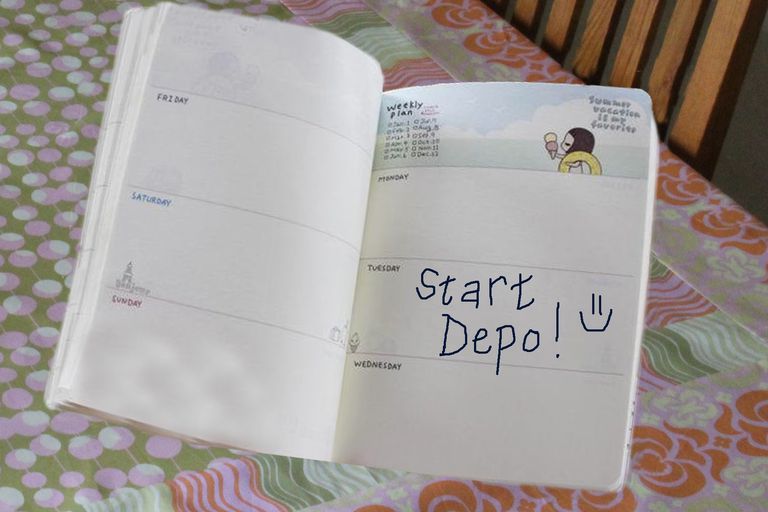 FRIDAY
SATURDAY
Bonjour
SUNDAY
weekly
plan
Summer
vacation
is my
favorite
MONDAY
TUESDAY
Start
Depo!
WEDNESDAY